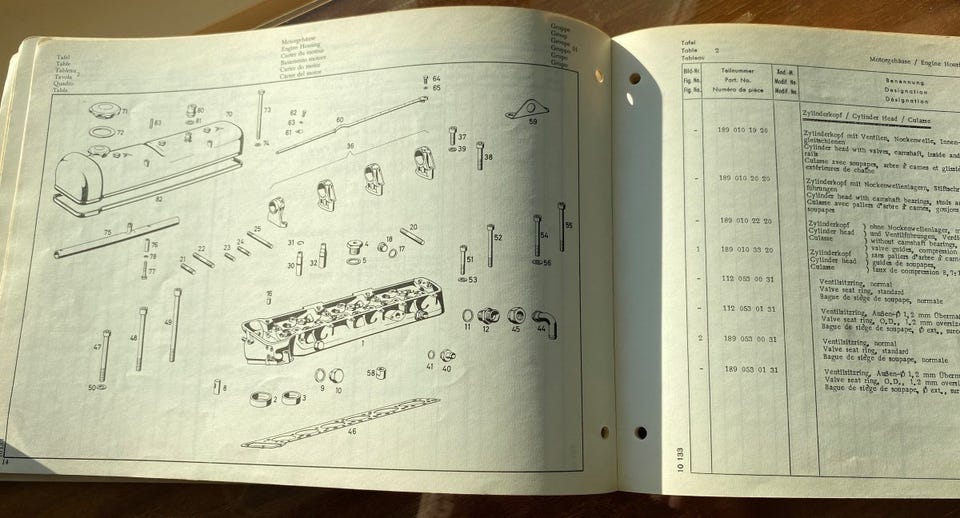 Tafel
Table
Tableau 2
Tavola
Quadro
Tabla
Motorgehäuse
Engine Housing
Carter du moteur
Basamento motore
Carter do motor
Cárter del motor
Gruppe
Group
Groupe 01
Gruppo
Grupo
Grupo
71
72
63
80
81
70
73
74
82
62
63
61
60
64
65
59
36
37
39
38
82
75
76
78
77
21
22
23
24
25
31
30
32
4
5
18
17
20
51
53
52
54
56
55
16
1
11
12
45
44
47
50
48
49
8
9
10
2
3
58
41
40
46
14
Tafel
Table 2
Tableau
Motorgehäuse / Engine Hous
Bild-Nr. Teilenummer Änd.-M. Benennung
Fig. No. Part. No. Modif. No. Designation
Fig. No. Numéro de pièce Modif. No. Désignation
Zylinderkopf / Cylinder Head / Culasse
- 189 010 19 20 Zylinderkopf mit Ventilen, Nockenwelle, Innen-
gleitschienen
Cylinder head with valves, camshaft, inside and
rails
Culasse avec soupapes, arbre à cames et glissi
extérieures de chaîne
- 189 010 20 20 Zylinderkopf mit Nockenwellenlagern, Stiftschr
führungen
Cylinder head with camshaft bearings, studs a
Culasse avec paliers d'arbre à cames, goujons
soupapes
- 189 010 22 20 Zylinderkopf } ohne Nockenwellenlager, m
Cylinder head } und Ventilführungen, Verdi
Culasse } without camshaft bearings,
1 189 010 33 20 Zylinderkopf } valve guides, compression
Cylinder head } sans paliers d'arbre à cam
Culasse } guides de soupapes,
} taux de compression 8,7:1
- 112 053 00 31 Ventilsitzring, normal
Valve seat ring, standard
Bague de siège de soupape, normale
- 112 053 01 31 Ventilsitzring, Außen-Ø 1,2 mm Übermaß
Valve seat ring, O.D., 1.2 mm oversiz
Bague de siège de soupape, Ø ext., surc
2 189 053 00 31 Ventilsitzring, normal
Valve seat ring, standard
Bague de siège de soupape, normale
- 189 053 01 31 Ventilsitzring, Außen-Ø 1,2 mm Überm
Valve seat ring, O.D., 1.2 mm oversiz
Bague de siège de soupape, Ø ext., su
10 133